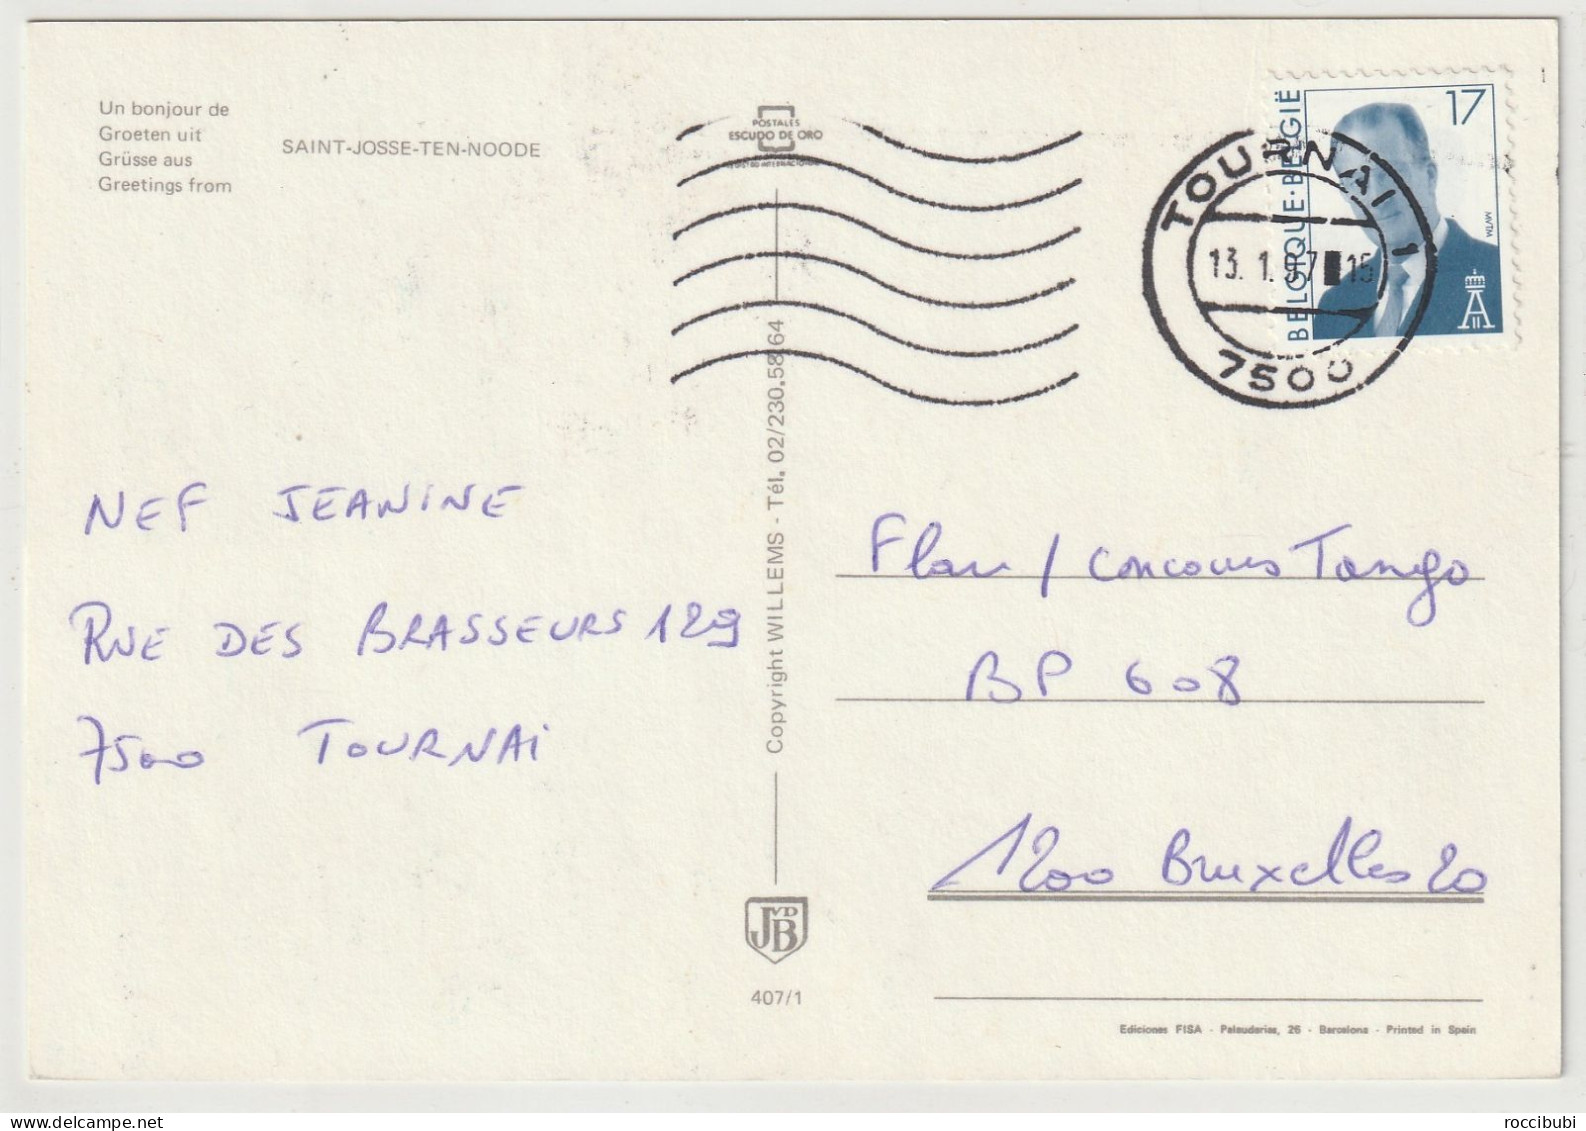 Un bonjour de
Groeten uit
Grüsse aus
Greetings from
SAINT-JOSSE-TEN-NOODE
POSTALES
ESCUDO DE ORO
BELGIQUE·BELGIË
17
MVTM
TOURNAI 1
13. 1. 97 15
7500
NEF JEANINE
RUE DES BRASSEURS 129
7500 TOURNAi
Copyright WILLEMS - Tél. 02/230.58.64
Flair / Concours Tango
BP 608
1200 Bruxelles 20
JVDB
407/1
Ediciones FISA - Palaudarias, 26 - Barcelona - Printed in Spain
roccibubi